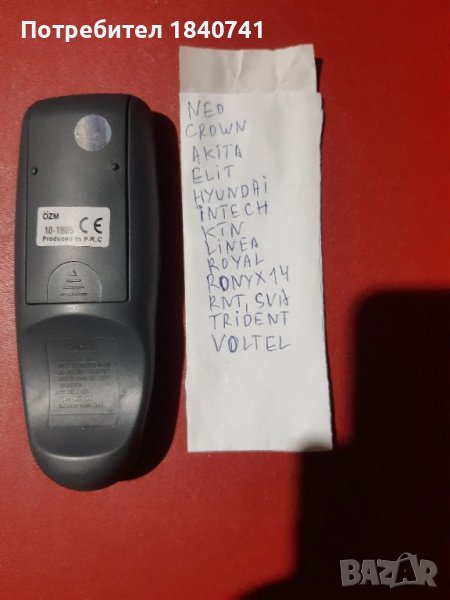 Потребител 1840741
NEO
CROWN
AKITA
ELIT
HYUNDAI
INTECH
KTN
LINEA
ROYAL
RONYX14
RNT, SVA
TRIDENT
VOLTEL
ÖZM CE
10-1805
Produced in P.R.C
BAZAR